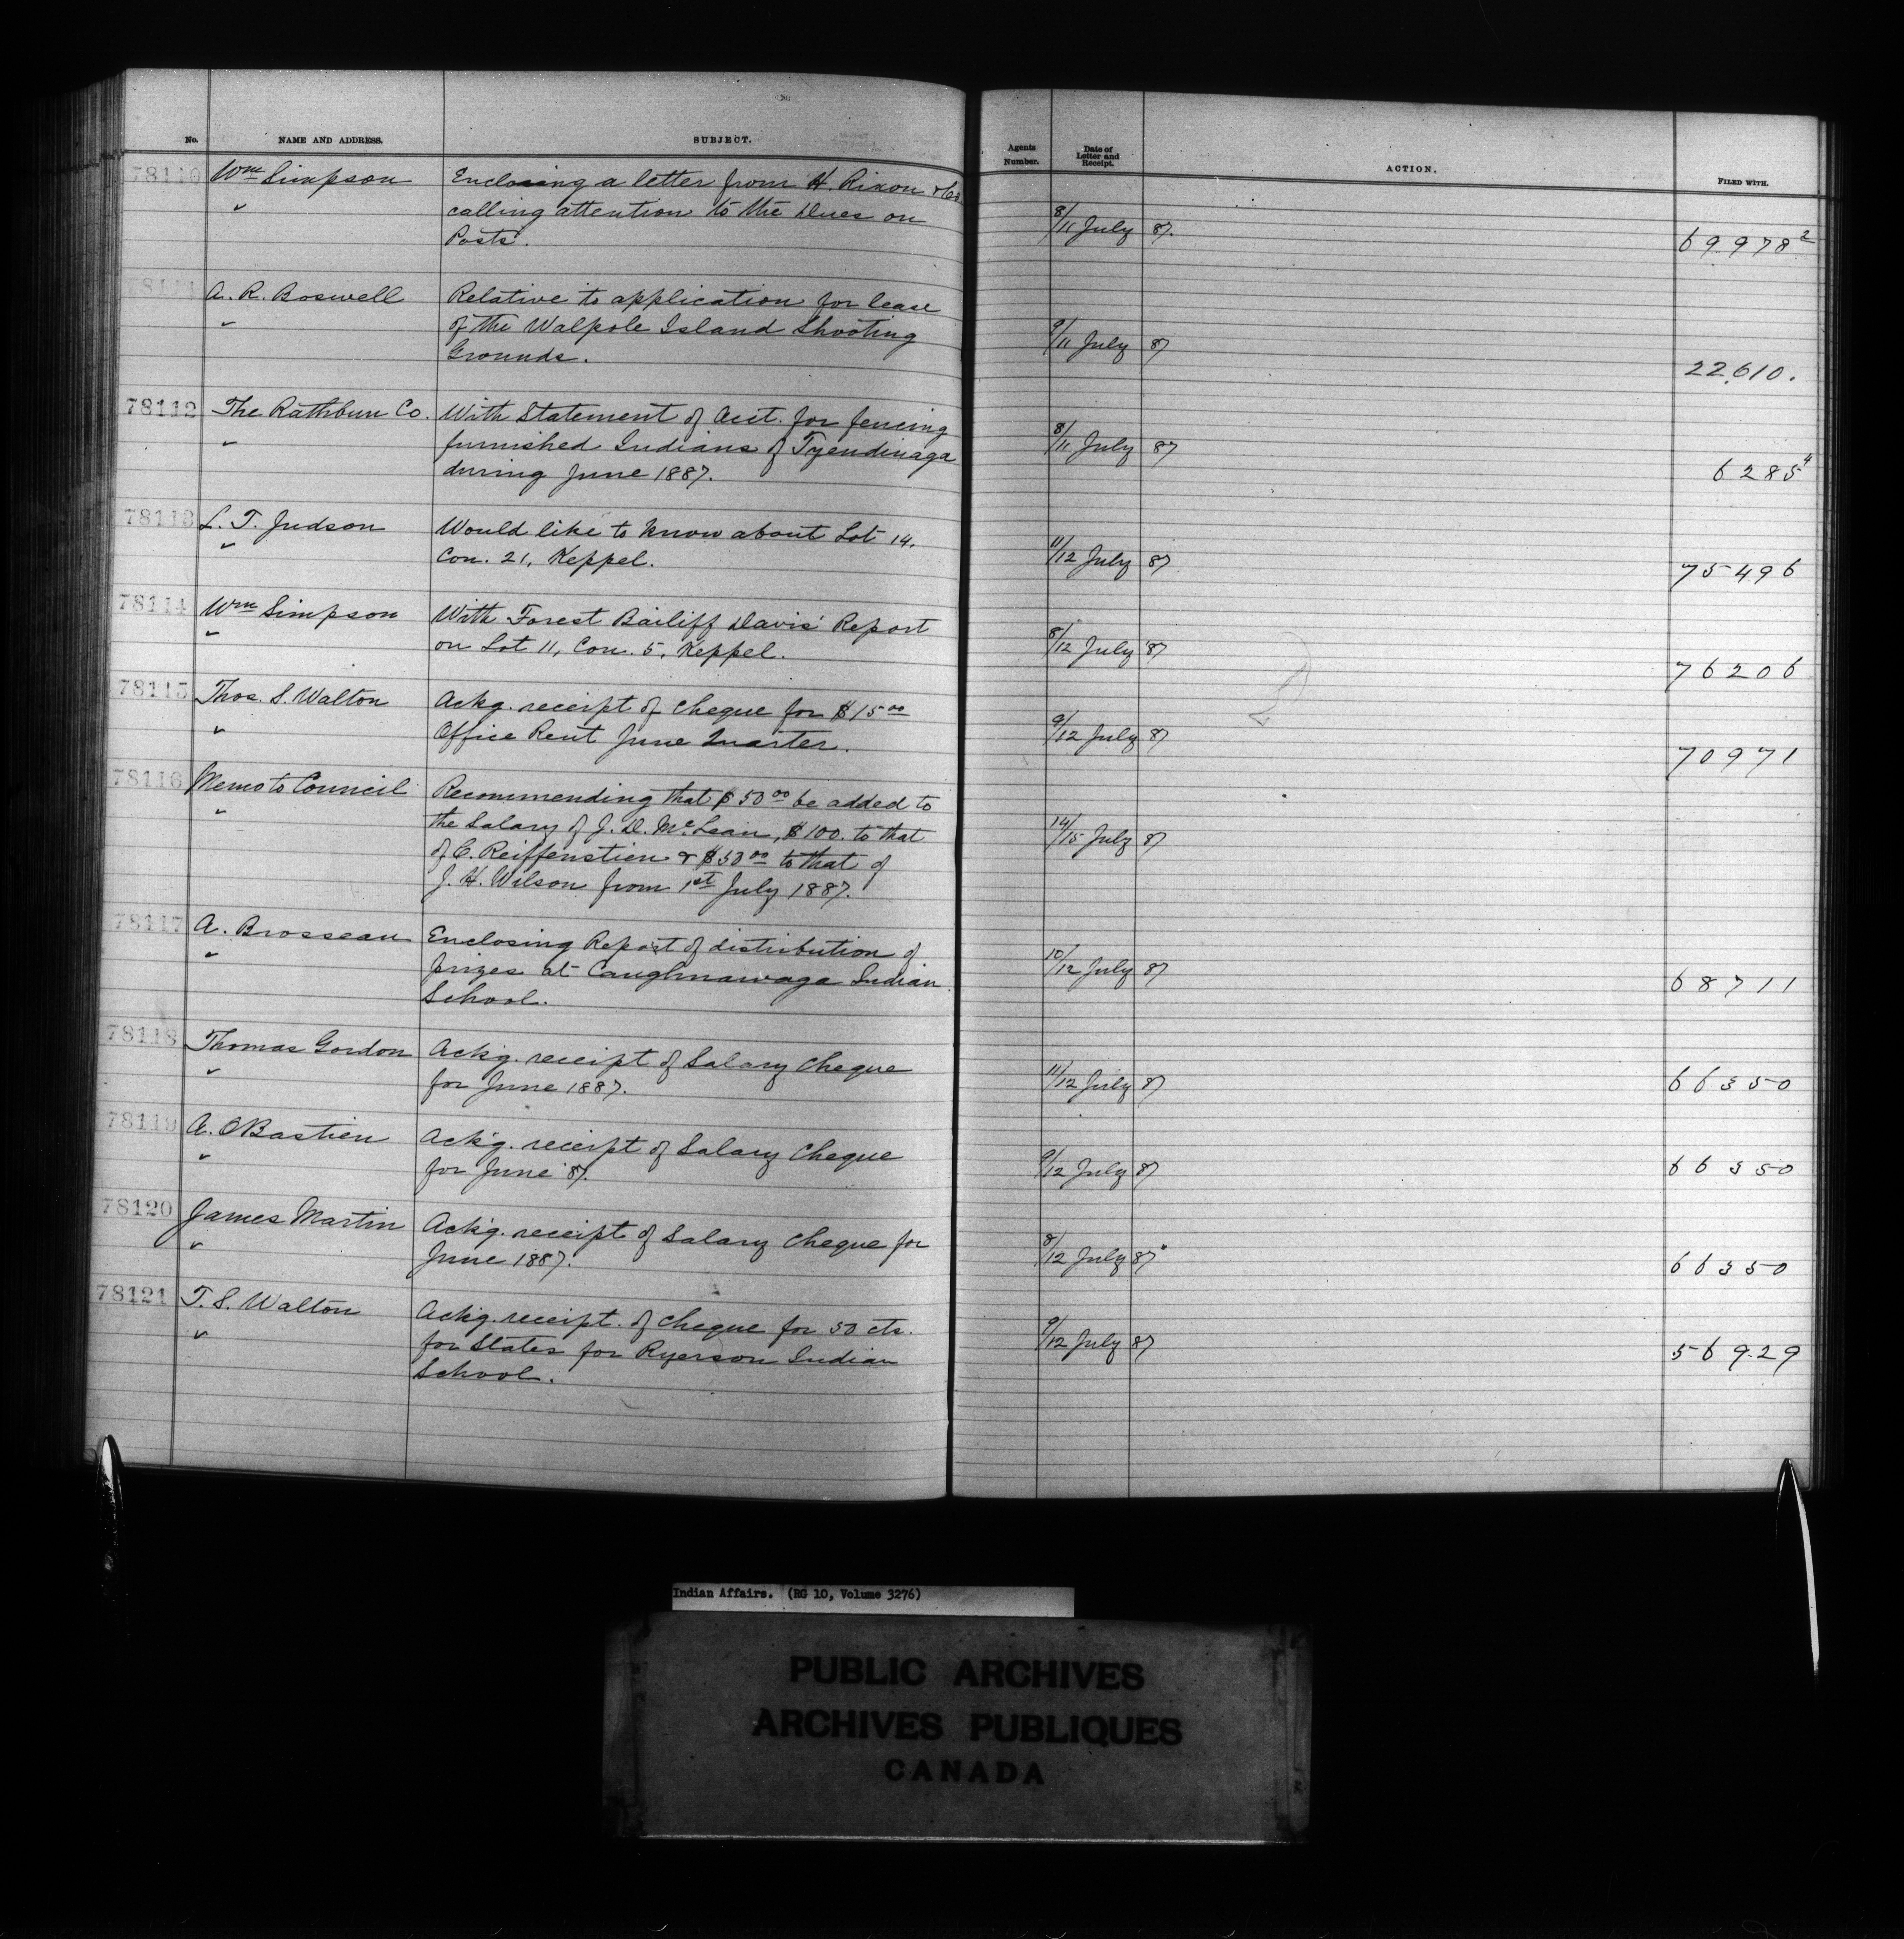 No. NAME AND ADDRESS. SUBJECT. Agents Number. Date of Letter and Receipt. ACTION. FILED WITH.
78110 Wm Simpson Enclosing a letter from H. Rixon & Co.
✓ calling attention to the Dues on
Posts. 8/11 July 87. 69.978²
78111 A. R. Boswell Relative to application for lease
✓ of the Walpole Island Shooting
Grounds. 9/11 July 87 22.610.
78112 The Rathbun Co. With Statement of Acct. for fencing
✓ furnished Indians of Tyendinaga
during June 1887. 8/11 July 87 6285⁴
78113 L. T. Judson Would like to know about Lot 14.
✓ Con. 21, Keppel. 11/12 July 87 75496
78114 Wm Simpson With Forest Bailiff Davis' Report
✓ on Lot 11, Con. 5, Keppel. 8/12 July 87 76206
78115 Thos. S. Walton Ackg. receipt of cheque for $15 00
✓ Office Rent June Quarter. 9/12 July 87 70971
78116 Memo to Council Recommending that $50 00 be added to
✓ the Salary of J. D. McLean, $100. to that
of C. Reiffenstien & $50 00 to that of
J. H. Wilson from 1st July 1887. 14/15 July 87
78117 A. Brosseau Enclosing Report of distribution of
✓ prizes at Caughnawaga Indian
School. 10/12 July 87 68711
78118 Thomas Gordon Ack'g. receipt of Salary Cheque
✓ for June 1887. 11/12 July 87 66350
78119 A. O Bastien Ack'g. receipt of Salary Cheque
✓ for June '87. 9/12 July 87 66350
78120 James Martin Ack'g. receipt of Salary Cheque for
✓ June 1887. 8/12 July 87 66350
78121 T. S. Walton Ackg. receipt of cheque for 50 cts.
✓ for Slates for Ryerson Indian
School. 9/12 July 87 56929
Indian Affairs. (RG 10, Volume 3276)
PUBLIC ARCHIVES
ARCHIVES PUBLIQUES
CANADA